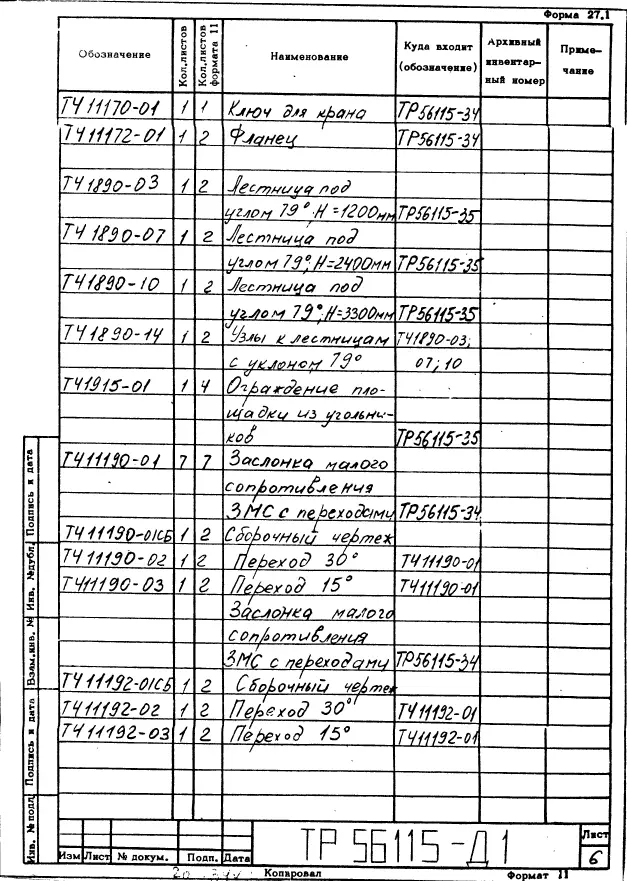 Форма 27.1
Обозначение Кол.листов Кол.листов формата 11 Наименование Куда входит (обозначение) Архивный инвентар- ный номер Приме- чание
ТЧ 11170-01 1 1 Ключ для крана ТР56115-34
ТЧ 11172-01 1 2 Фланец ТР56115-34
ТЧ 1890-03 1 2 Лестница под
углом 79°, Н=1200мм ТР56115-35
ТЧ 1890-07 1 2 Лестница под
углом 79°; Н=2400мм ТР56115-35
ТЧ1890-10 1 2 Лестница под
углом 79°, Н=3300мм ТР56115-35
ТЧ1890-14 1 2 Узлы к лестницам ТЧ1890-03;
с уклоном 79° 07; 10
ТЧ1915-01 1 4 Ограждение пло-
щадки из угольни-
ков ТР56115-35
ТЧ11190-01 7 7 Заслонка малого
сопротивления
ЗМС с переходами ТР56115-34
ТЧ11190-01СБ 1 2 Сборочный чертеж
ТЧ11190-02 1 2 Переход 30° ТЧ11190-01
ТЧ11190-03 1 2 Переход 15° ТЧ11190-01
Заслонка малого
сопротивления
ЗМС с переходами ТР56115-34
ТЧ11192-01СБ 1 2 Сборочный чертеж
ТЧ11192-02 1 2 Переход 30° ТЧ11192-01
ТЧ11192-03 1 2 Переход 15° ТЧ11192-01
Подпись и дата
Инв. №дубл.
Взам.инв. №
Подпись и дата
Инв. №подл.
Изм Лист № докум. Подп. Дата
ТР 56115-Д1
Лист
6
Копировал Формат 11